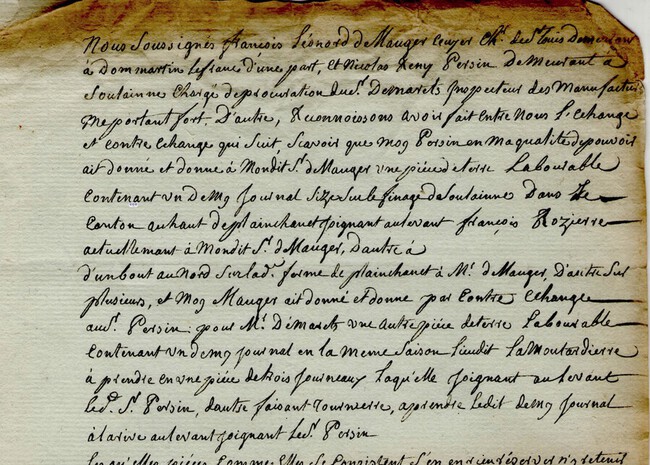 Nous Soussignés françois Léonard de Mauger Ecuyer Chr. de St. Louis Demeurant
à Dommartin Lefranc d'une part, Et Nicolas Remy Persin Demeurant a
Soulainne Chargé de procuration du Sr. Demarets Inspecteur des Manufactures
me portant fort. D'autre, Reconnoissons avoir fait Entre Nous l'Echange
et Contre Echange qui Suit, Scavoir que moy Persin en Ma qualité de pouvoir
ait donné et donne à Mondit Sr. de Mauger une piéce de terre Labourable
Contenant un Demy Journal Size Sur le finage de Soulainne Dans Le
Canton au haut de plainchanet Joignant au levant françois Rozierre
actuellemant à Mondit Sr. de Mauger, Dautre à
d'un bout au Nord Sur lad. ferme de plainchanet à Mr. de Mauger, D'autre Sur
plusieurs, et Moy Mauger ait donné et donne par Contre Echange
au Sr. Persin pour Mr. Démarets une autre piéce de terre Labourable
Contenant un demy Journal en la Meme Saison Lieudit La Moutardierre
à prendre en une piéce de trois Journeaux Laquelle Joignant au levant
led. Sr. Persin, dautre faisant Tournierre, a prendre Ledit demy Journal
à la rive au levant Joignant Led. Sr. Persin
Lesquelles piéces Comme Elles Se Consistent S'en en rien réserver n'y retenir